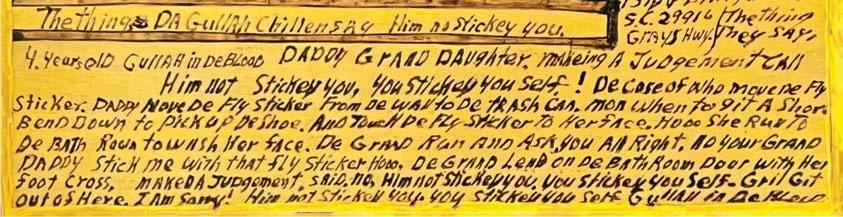 The things DA GullAh Chillen say Him no Stickey you.
S.C. 29916 The thing
GRAYS Hwy. They SAy,
4. years olD GullAH in De Blood DADDY GRAnD DAughter. making A Judgement CAll
Him not Stickey you, you Stickey you Self! De case of Who move De Fly
Sticker. DADDY Move De Fly Sticker From De WAll to De tRASh CAn. Mom when to git A Shoe.
BenD Down to Pick up De Shoe. And Touch De Fly Sticker To Her FAce. Hooo She Run To
De BAth Room to wash Her FAce. De GranD Run Ann Ask, you All Right, no your GRAnD
DADDY Stick me with that fly Sticker Hooo. De GrAnD LenD on De BAth Room Door with Her
foot Cross, mAke DA JuDgement, SAiD. no, Him not Stickey you, you Stickey you Self. Gril Git
out oF Here. I Am SoRRy! Him not Stickey you. you Stickey you Self Gullah in De BlooD